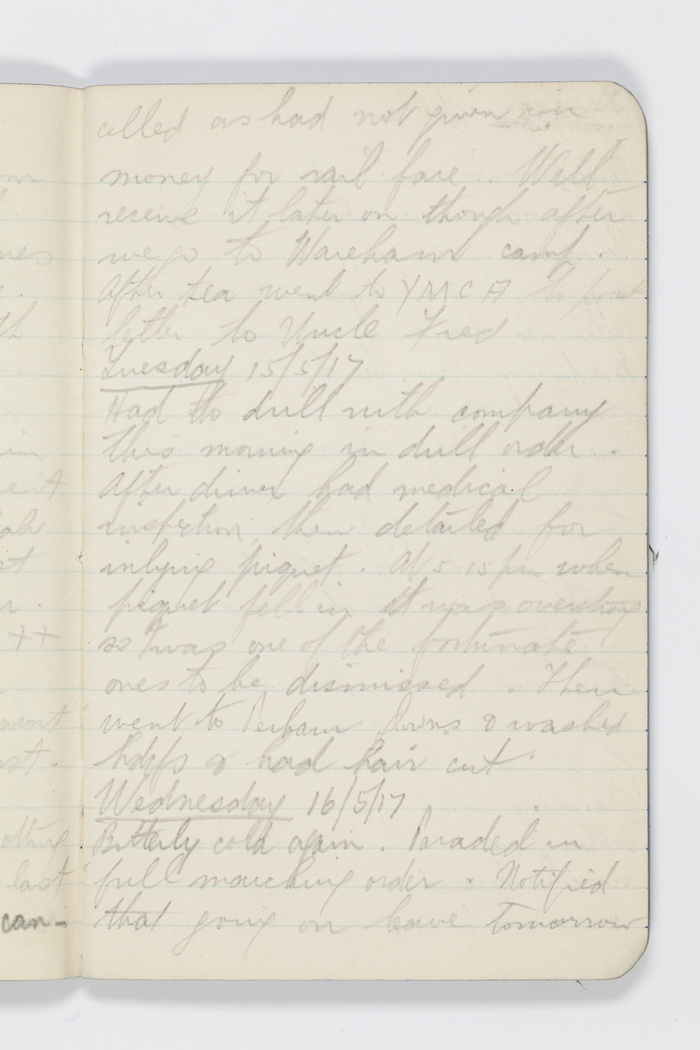 called as had not given in
money for rail fare. Will
receive it later on though after
we go to Wareham camp.
After tea went to YMCA to post
letter to Uncle Fred
Tuesday 15/5/17
Had to drill with company
this morning in drill order.
After dinner had medical
inspection, then detailed for
inlying piquet. At 5.15 pm when
piquet fell in it was overstrong
so I was one of the fortunate
ones to be dismissed. Then
went to Perham Downs & washed
hdkfs & had hair cut.
Wednesday 16/5/17
Bitterly cold again. Paraded in
full marching order. Notified
that going on leave tomorrow
went
last
can-